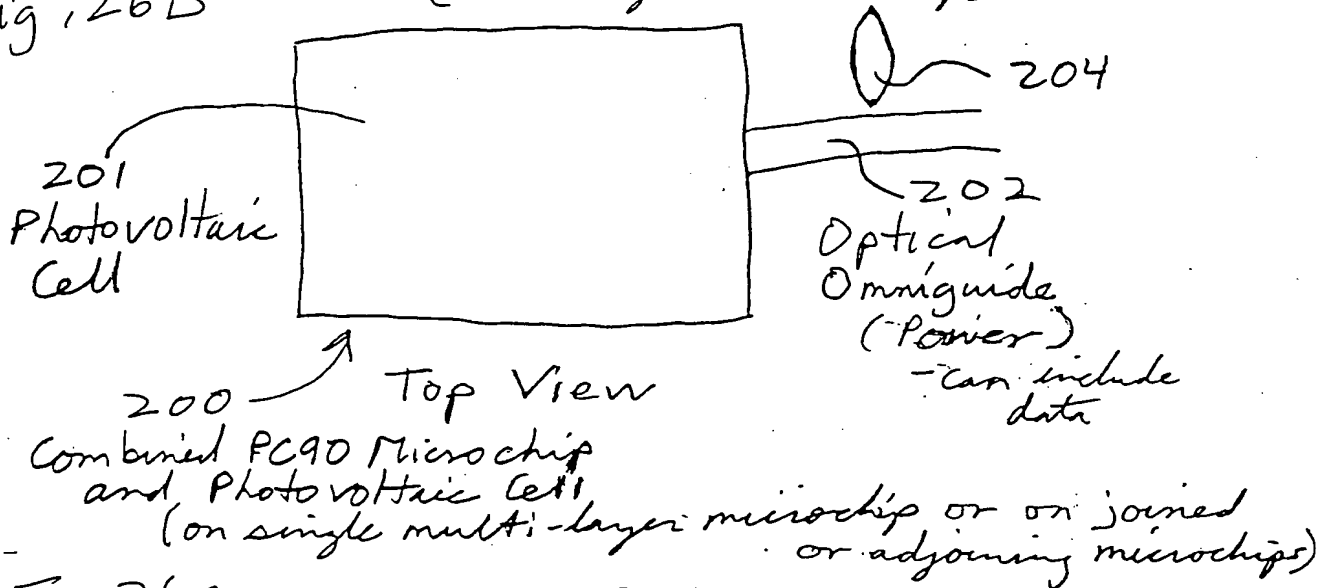 ig. 26B
204
201
Photovoltaic
Cell
202
Optical
Omniguide
(Power)
- can include
data
200
Top View
Combined PC90 Microchip
and Photovoltaic Cell
(on single multi-layer microchip or on joined
or adjoining microchips)